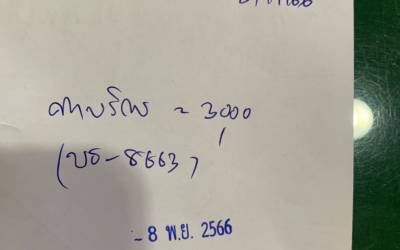 ค่าบริการ ~ 3,000
(บธ-8663)
- 8 พ.ย. 2566